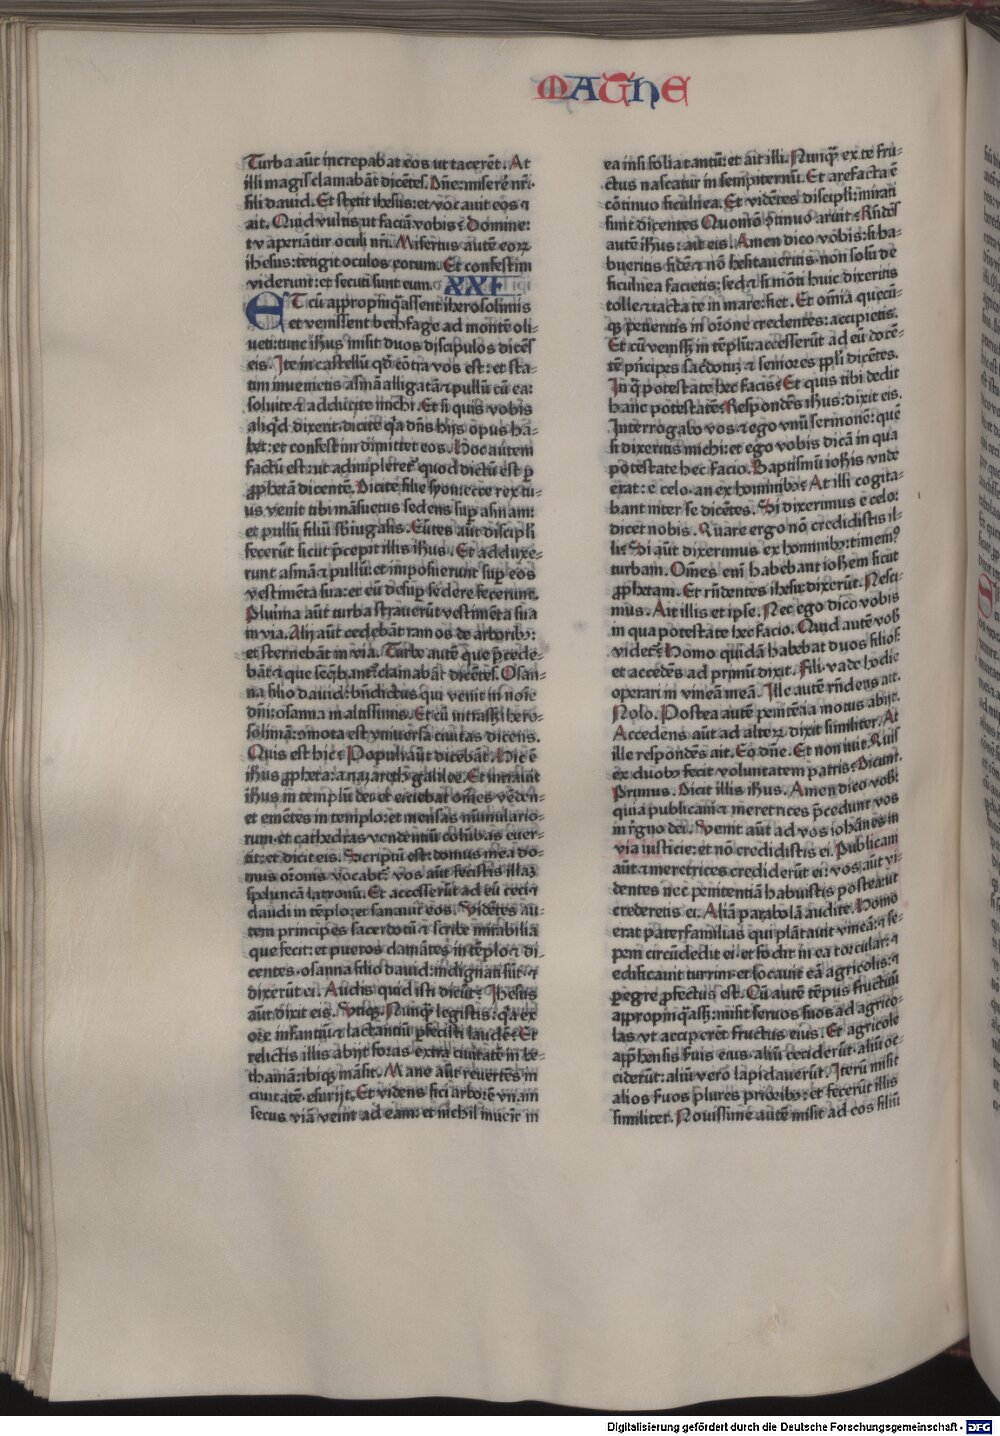 MATHE
Turba aūt increpabat eos ut tacerēt. At
illi magis clamabāt dicētes. Dn̄e: miserē nr̄i.
fili dauid. Et stetit ihesus: et vocauit eos ⁊
ait. Quid vultis ut faciā vobis? Domine:
vt aperiātur oculi nr̄i. Misertus autē eoꝝ
ihesus: tetigit oculos eorum. Et confestim
viderunt: et secuti sunt eum. XXI
ET cū appropinq̄assent iherosolimis
et venissent bethfage ad montē oli-
ueti: tunc ih̄us misit duos discipulos dicēs
eis. Ite in castellū qd̄ cōtra vos est: et sta-
tim inuenietis asinā alligatā ⁊ pullū cū ea:
soluite ⁊ adducite michi. Et si quis vobis
aliq̇d dixerit: dicite q̇a dn̄s hijs opus ha-
bet: et confestim dimittet eos. Hoc autem
factū est: ut adimpleretᷣ quod dictū est ꝑ
ꝓphetā dicentē. Dicite filie syon: ecce rex tu-
us venit tibi māsuetus sedens suꝑ asinam:
et pullū filiū sbiugalis. Eūtes aūt discipli
fecerūt sicut p̄cepit illis ih̄us. Et adduxe-
runt asinā ⁊ pullū: et imposuerunt suꝑ eos
vestimēta sua: et eū desuꝑ sedere fecerunt.
Plurima aūt turba strauerūt vestimēta sua
in via. Alij aūt cedebāt ramos de arborib⁹:
et sternebāt in via. Turbe autē que p̄cede-
bāt ⁊ que seq̄bantᷣ: clamabāt dicētes. Osan-
na filio dauid: bn̄dictus qui venit in noīe
dn̄i: osanna in altissimis. Et cū intrassꝫ ihero-
solimā: cōmota est vniuersa ciuitas dicens.
Quis est hic? Populi aūt dicebāt. Hic ē
ih̄us ꝓpheta: a nazareth galilee. Et intrauit
ih̄us in templū dei: et eiciebat om̄es vēden-
et emētes in templo: et mensas nūmulario-
rum et cathedras vendentiū colūbas euer-
tit: et dicit eis. Scriptū est: domus mea do-
mus or̄onis vocabitᷣ: vos aūt fecistis illaꝫ
speluncā latronū. Et accesserūt ad eū ceci ⁊
claudi in tēplo: et sanauit eos. Vidētes au-
tem principes sacerdotū ⁊ scribe mirabilia
que fecit: et pueros clamātes in tēplo ⁊ di-
centes: osanna filio dauid: indignati sūt: ⁊
dixerūt ei. Audis quid isti dicūt? Ihesus
aūt dixit eis. Vtiqꝫ. Nunq̄ legistis: q̇a ex
ore infantiū ⁊ lactantiū ꝑfecisti laudē? Et
relictis illis abijt foras extra ciuitatē in be-
thaniā: ibiqꝫ māsit. Mane aūt reuertēs in
ciuitatē: esurijt. Et videns fici arborē vnam
secus viā venit ad eam: et nichil inuenit in
ea nisi folia tantū: et ait illi. Nunq̄ ex te fru-
ctus nascatur in sempiternū. Et arefacta ē
cōtinuo ficulnea. Et vidētes discipli: mirati
sunt dicentes Quomō ꝯtinuo aruit? Rn̄dēs
autē ih̄us: ait eis. Amen dico vobis: si ha-
bueritis fidē ⁊ nō hesitaueritis: non solū de
ficulnea facietis: sed ⁊ si mōti huic dixeritis
tolle ⁊ iacta te in mare: fiet. Et om̄ia quecū-
qꝫ petieritis in or̄one credentes: accipietis.
Et cū venissꝫ in tēplū: accesserūt ad eū docē-
tē p̄ncipes sac̄dotuꝫ ⁊ seniores ppl̄i dicētes.
In q̄ potestate hec facis? Et quis tibi dedit
hanc potestatē? Respondēs ih̄us: dixit eis.
Interrogabo vos ⁊ ego vnū sermonē: quē
si dixeritis michi: et ego vobis dicā in qua
potestate hec facio. Baptismū ioh̄is vnde
erat: e celo: an ex hominib⁹? At illi cogita-
bant inter se dicētes. Si dixerimus e celo:
dicet nobis. Quare ergo nō credidistis il-
li? Si aūt dixerimus ex hominib⁹: timem⁹
turbam. Om̄es eni habebant ioh̄em sicut
ꝓphetam. Et rn̄dentes ihesu: dixerūt. Nesci-
mus. Ait illis et ipse. Nec ego dico vobis
in qua potestate hec facio. Quid autē vob̄
videtᷣ? Homo quidā habebat duos filios:
et accedēs ad primū dixit. Fili vade hodie
operari in vineā meā. Ille autē rn̄dens ait.
Nolo. Postea autē penitētia motus abijt.
Accedens aūt ad alterꝫ dixit similiter. At
ille respondēs ait. Eo dn̄e. Et non iuit. Quis
ex duob⁹ fecit voluntatem patris? Dicunt.
Primus. Dicit illis ih̄us. Amen dico vob̄:
quia publicani ⁊ meretrices p̄cedunt vos
in regno dei. Venit aūt ad vos iohānes in
via iusticie: et nō credidistis ei. Publicani
aūt ⁊ meretrices crediderūt ei: vos aūt vi-
dentes nec penitentiā habuistis postea: ut
crederetis ei. Aliā parabolā audite. Homo
erat paterfamilias qui plātauit vineā: ⁊ se-
pem circūdedit ei: et fodit in ea torcular: ⁊
edificauit turrim: et locauit eā agricolis: ⁊
ꝑegre ꝓfectus est. Cū autē tēpus fructuū
appropinq̄assꝫ: misit seruos suos ad agrico-
las vt acciperēt fructus eius. Et agricole
app̄hensis suis eius: aliū ceciderūt: aliū oc-
ciderūt: aliū vero lapidauerūt. Iterū misit
alios suos plures priorib⁹: et fecerūt illis
similiter. Nouissime autē misit ad eos filiū
Digitalisierung gefördert durch die Deutsche Forschungsgemeinschaft - DFG